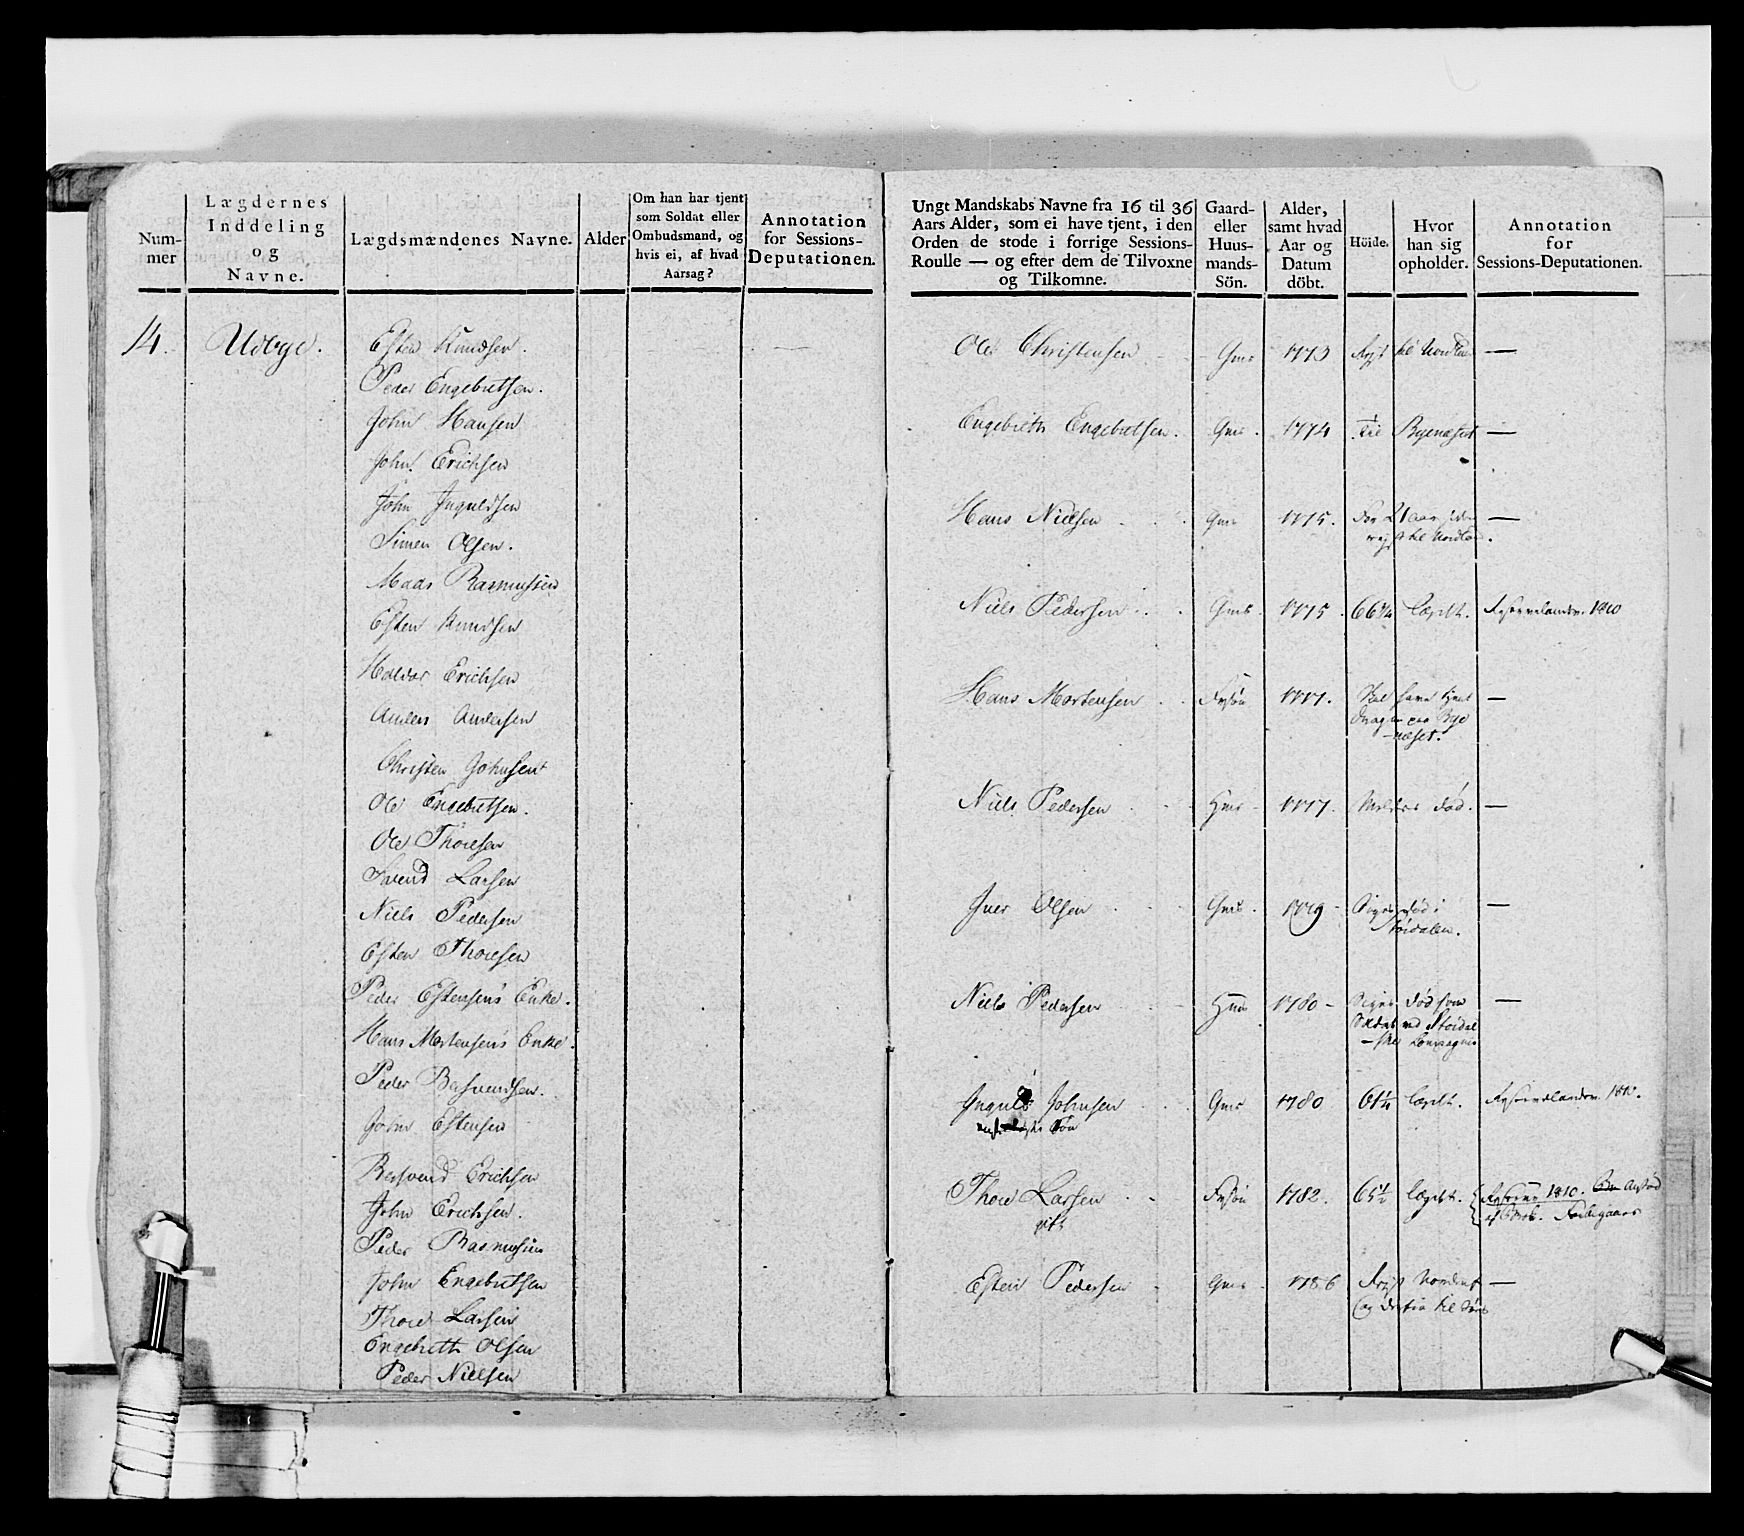 Num-
mer
Lægdernes
Inddeling
og
Navne.
Lægdsmændenes Navne.
Alder
Om han har tjent
som Soldat eller
Ombudsmand, og
hvis ei, af hvad
Aarsag?
Annotation
for Sessions-
Deputationen.
14. Udbye.
Esten Knudsen.
Peder Engebretsen.
John Hansen
John Erichsen
John Inguldsen
Simen Olsen.
Mads Rasmussen
Esten Knudsen
Haldor Erichsen
Anders Andersen
Christen Johnsen
Ole Engebretsen.
Ole Thoresen
Svend Larsen
Niels Pedersen
Esten Thoresen
Peder Estensens Enke.
Hans Mortensens Enke.
Peder Basvendsen.
John Estensen
Basvend Erichsen
John Erichsen.
Peder Rasmussen
John Engebretsen
Thore Larsen
Engebreth Olsen
Peder Nielsen
Ungt Mandskabs Navne fra 16 til 36
Aars Alder, som ei have tjent, i den
Orden de stode i forrige Sessions-
Roulle — og efter dem de Tilvoxne
og Tilkomne.
Gaard-
eller
Huus-
mands-
Sön.
Alder,
samt hvad
Aar og
Datum
döbt.
Höide.
Hvor
han sig
opholder.
Annotation
for
Sessions-Deputationen.
Ole Christensen Gms 1773 Rejst til Nordland —
Engebreth Engebretsen. Gms. 1774 til Byenæset —
Hans Nielsen Gms 1775. For 21 aar siden —
rejst til Nordland.
Niels Pedersen Gms. 1775. 66 3/4 Lægdet. 1810
Hans Mortensen 1777. Skal have tjent —
Dragon paa Bye
-næset.
Niels Pedersen Hms 1777. Meldes død. —
Iver Olsen Gms. 1779 Siges død i —
Støidalen.
Niels Pedersen Hms 1780 - Siges død som —
Soldat ved Støidal
-ske Compagnie
Ingul Johnsen Gms 1780 61 1/4 Lægdet. 1810.
Søn
Thore Larsen 1782. 65 1/2 Lægdet. 1810.
gift
Esten Pedersen Gms. 1786 Rejst Nordret —